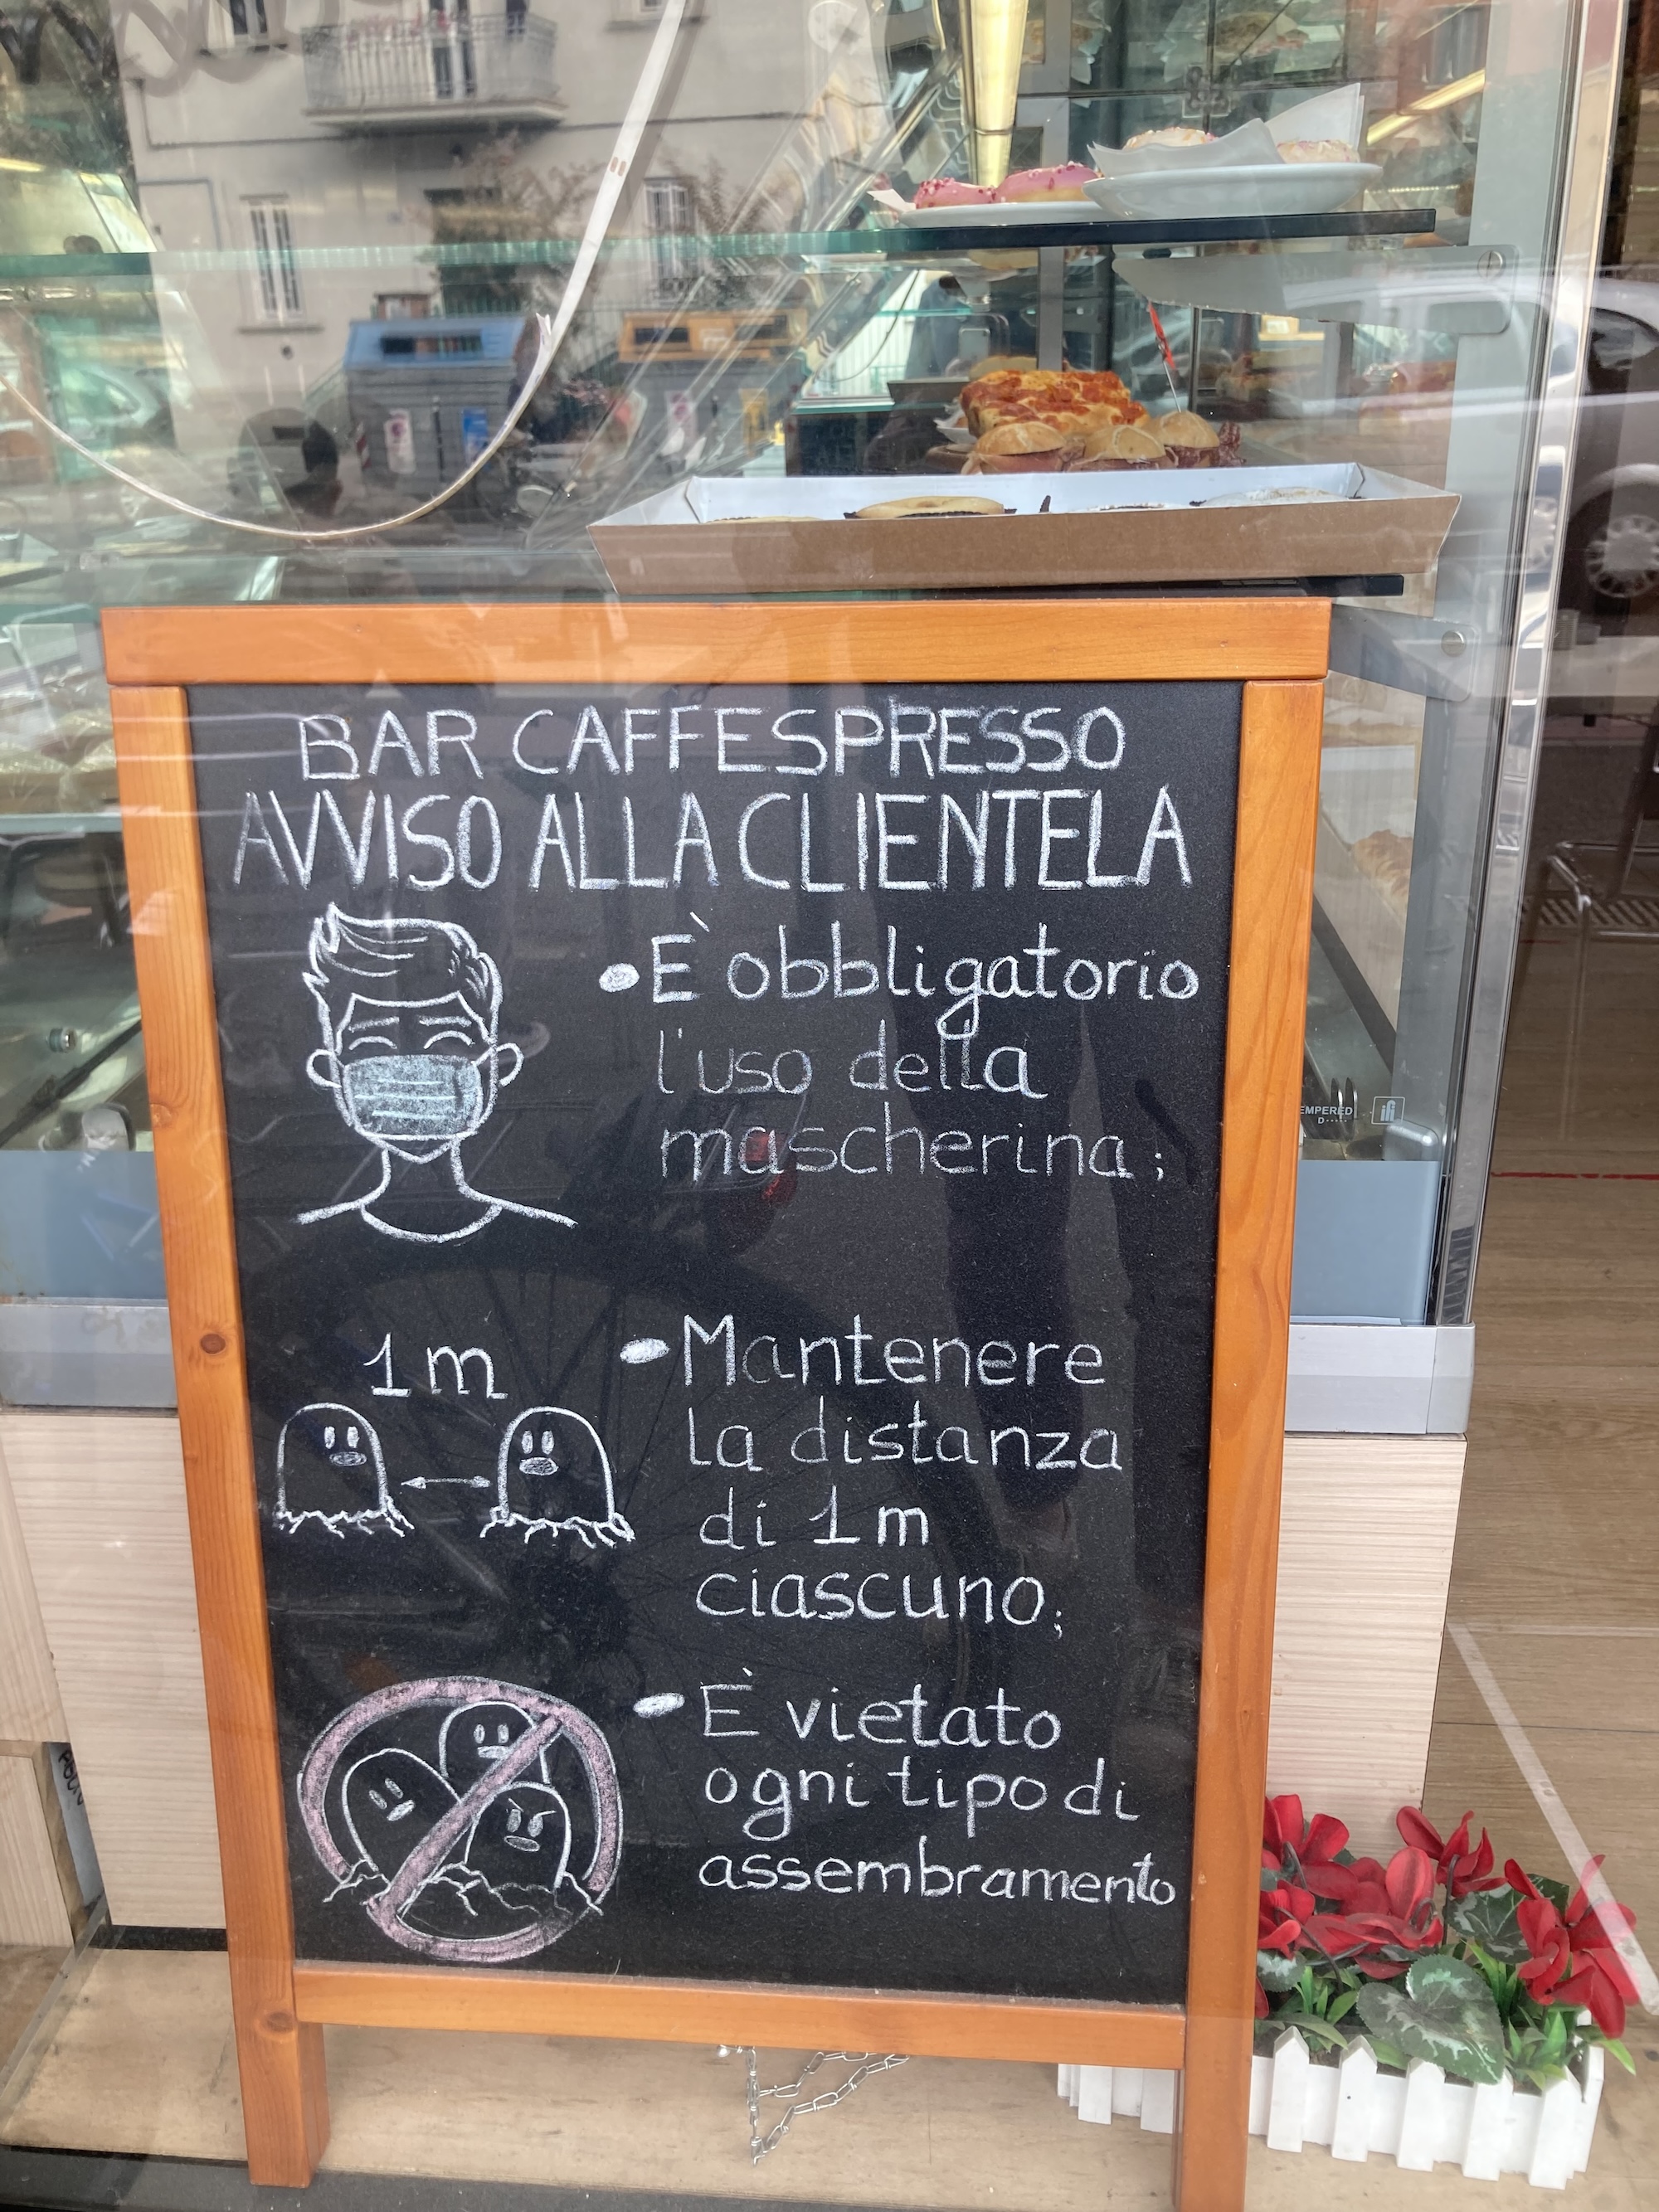 BAR CAFFESPRESSO
AVVISO ALLA CLIENTELA
• È obbligatorio
l'uso della
mascherina;
1m
• Mantenere
la distanza
di 1m
ciascuno;
• È vietato
ogni tipo di
assembramento
EMPERED
ifi